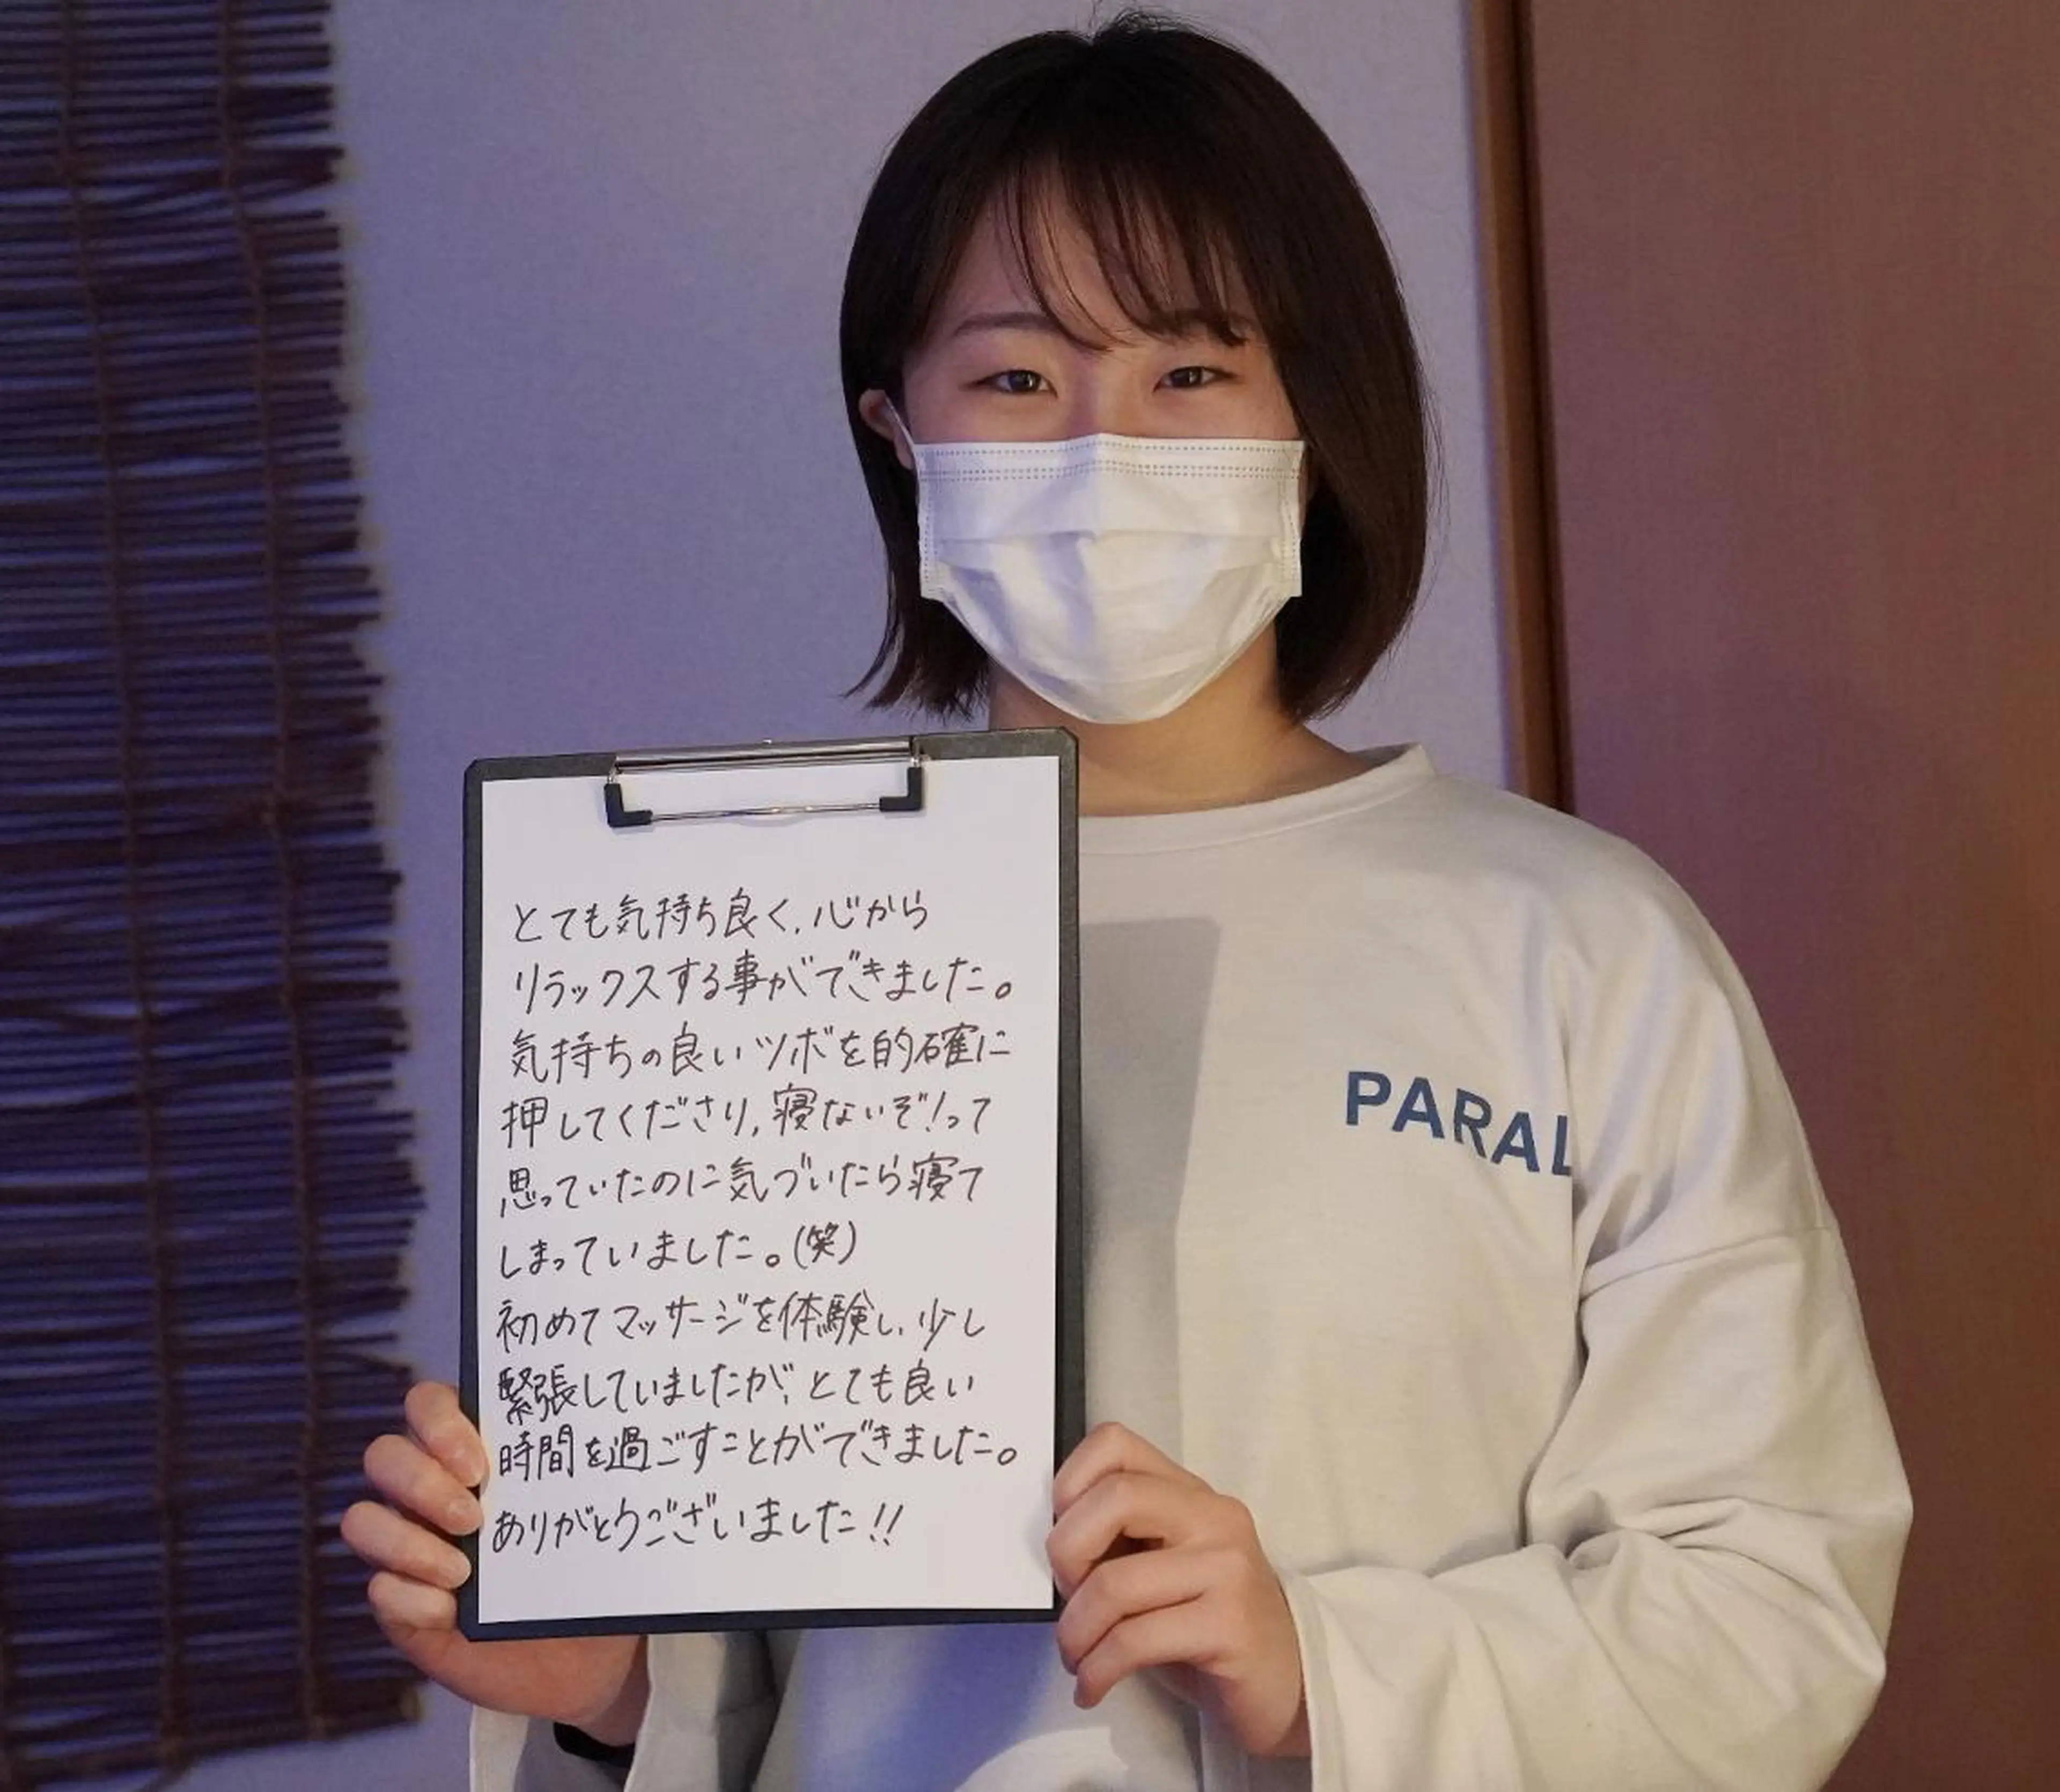 とても気持ち良く、心から
リラックスする事ができました。
気持ちの良いツボを的確に
押してくださり、寝ないぞ!って
思っていたのに気づいたら寝て
しまっていました。(笑)
初めてマッサージを体験し、少し
緊張していましたが、とても良い
時間を過ごすことができました。
ありがとうございました!!
PARAL